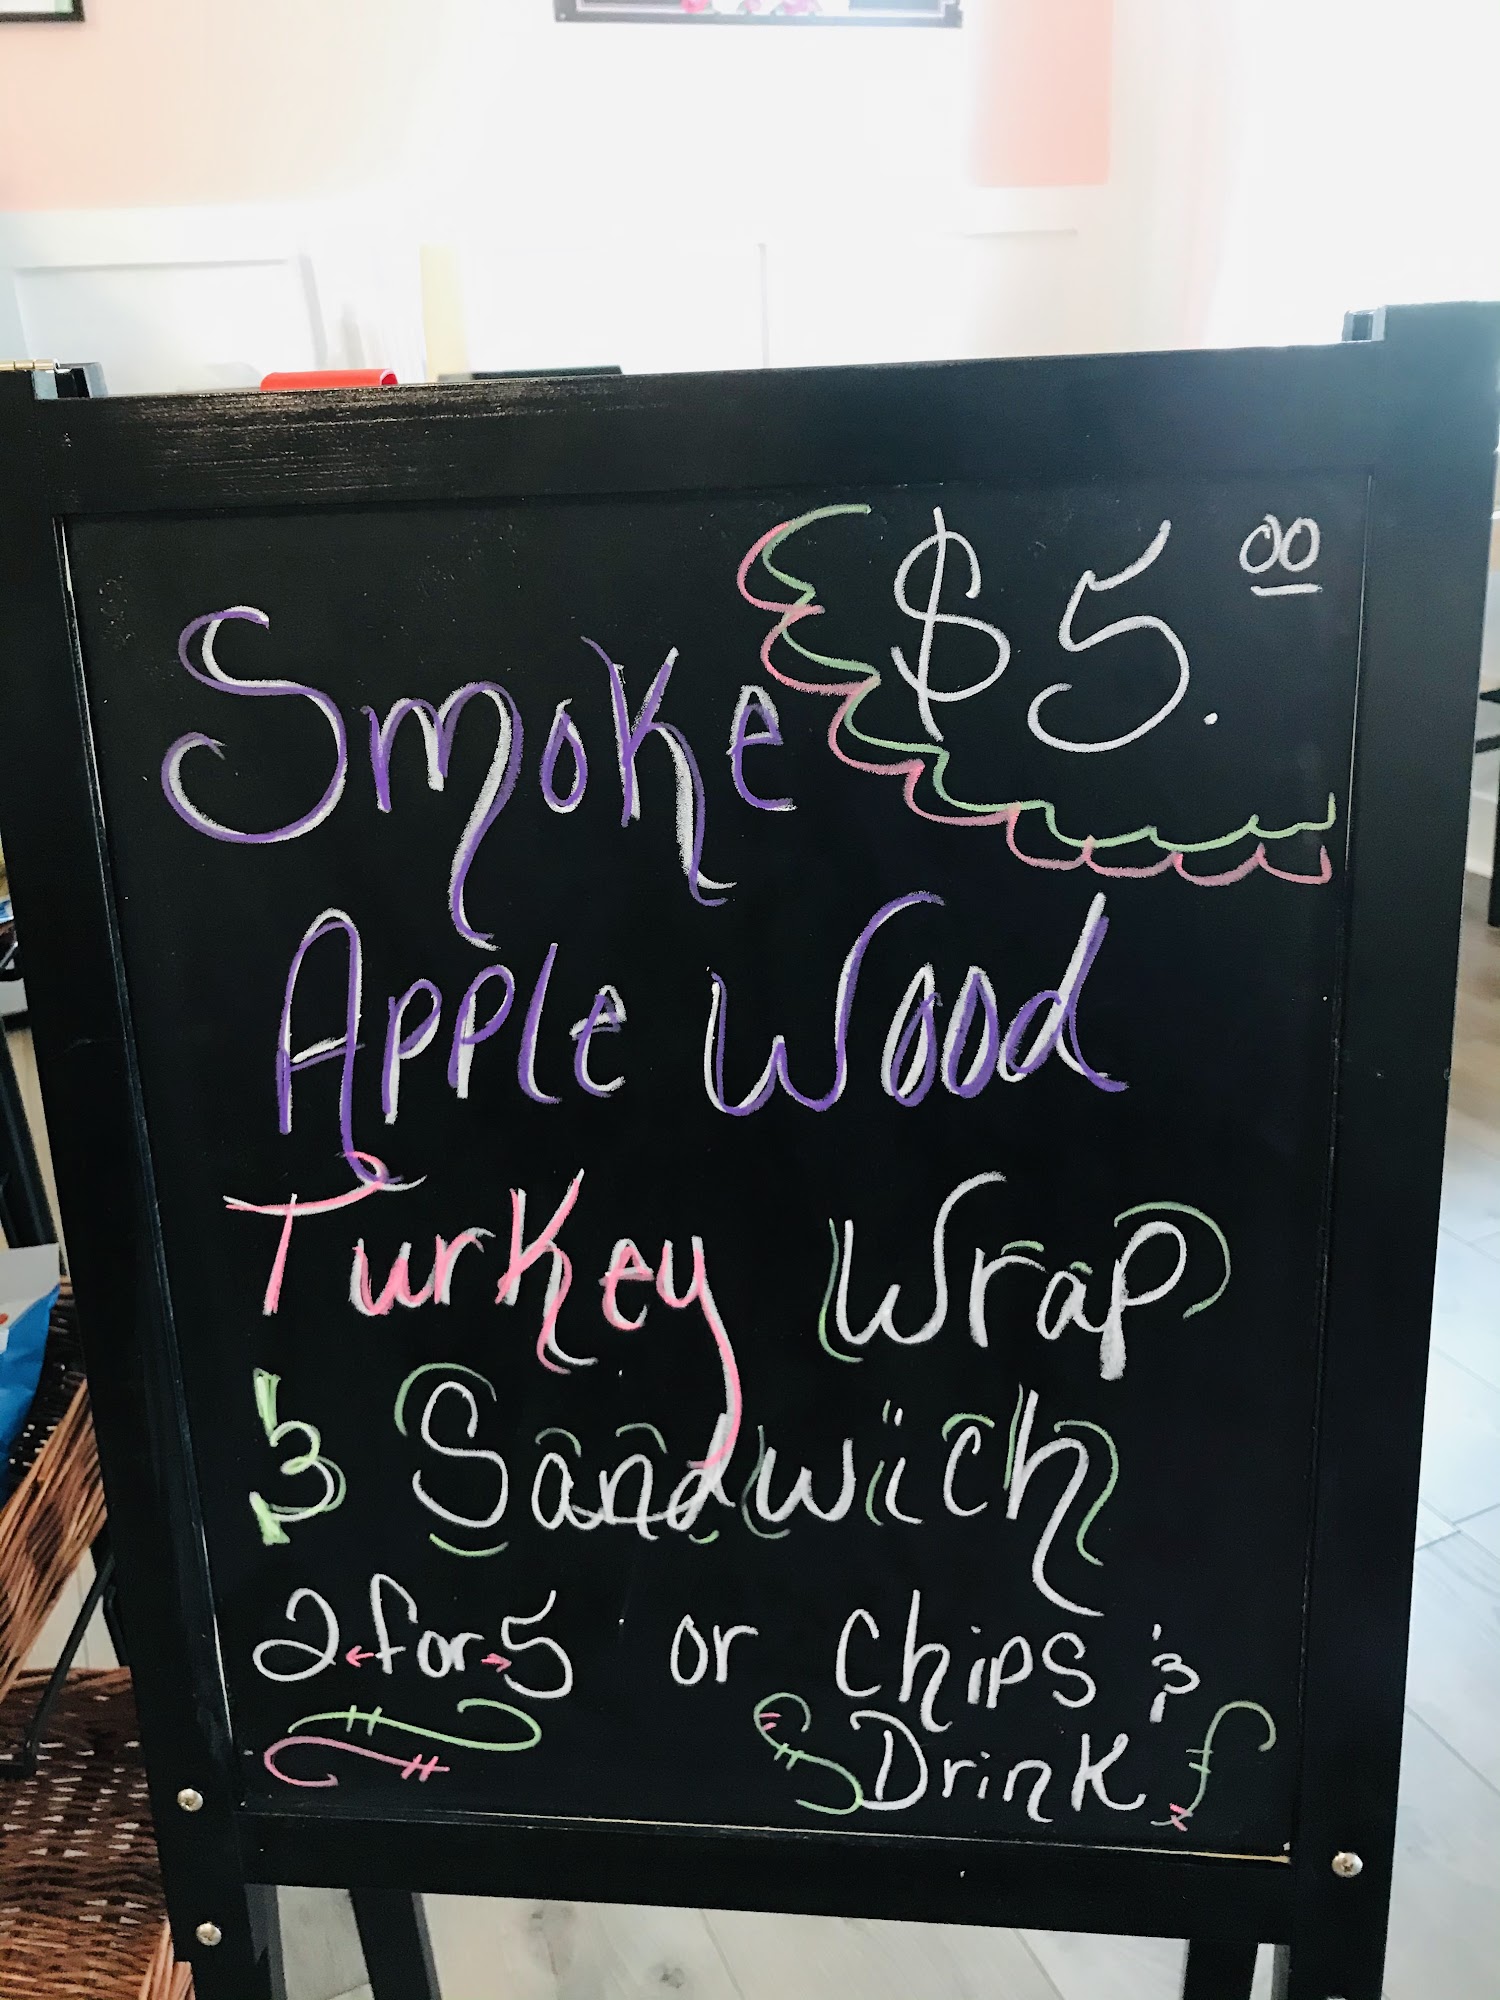 $5.00
Smoke
Apple Wood
Turkey Wrap
& Sandwich
2 for 5 or Chips &
Drink